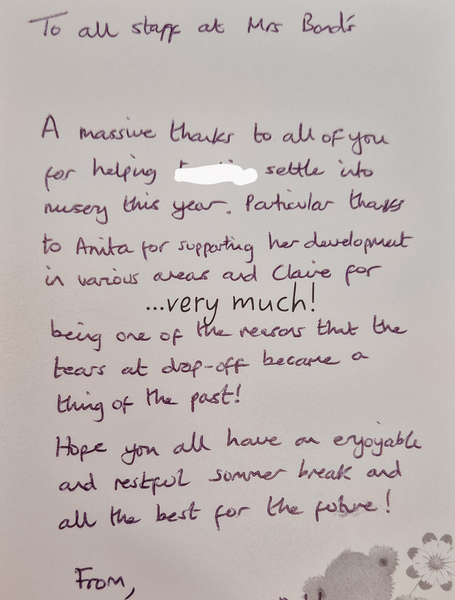 To all staff at Mrs Bond's
A massive thanks to all of you
for helping settle into
nursery this year. Particular thanks
to Anita for supporting her development
in various areas and Claire for
...very much!
being one of the reasons that the
tears at drop-off became a
thing of the past!
Hope you all have an enjoyable
and restful summer break and
all the best for the future!
From,